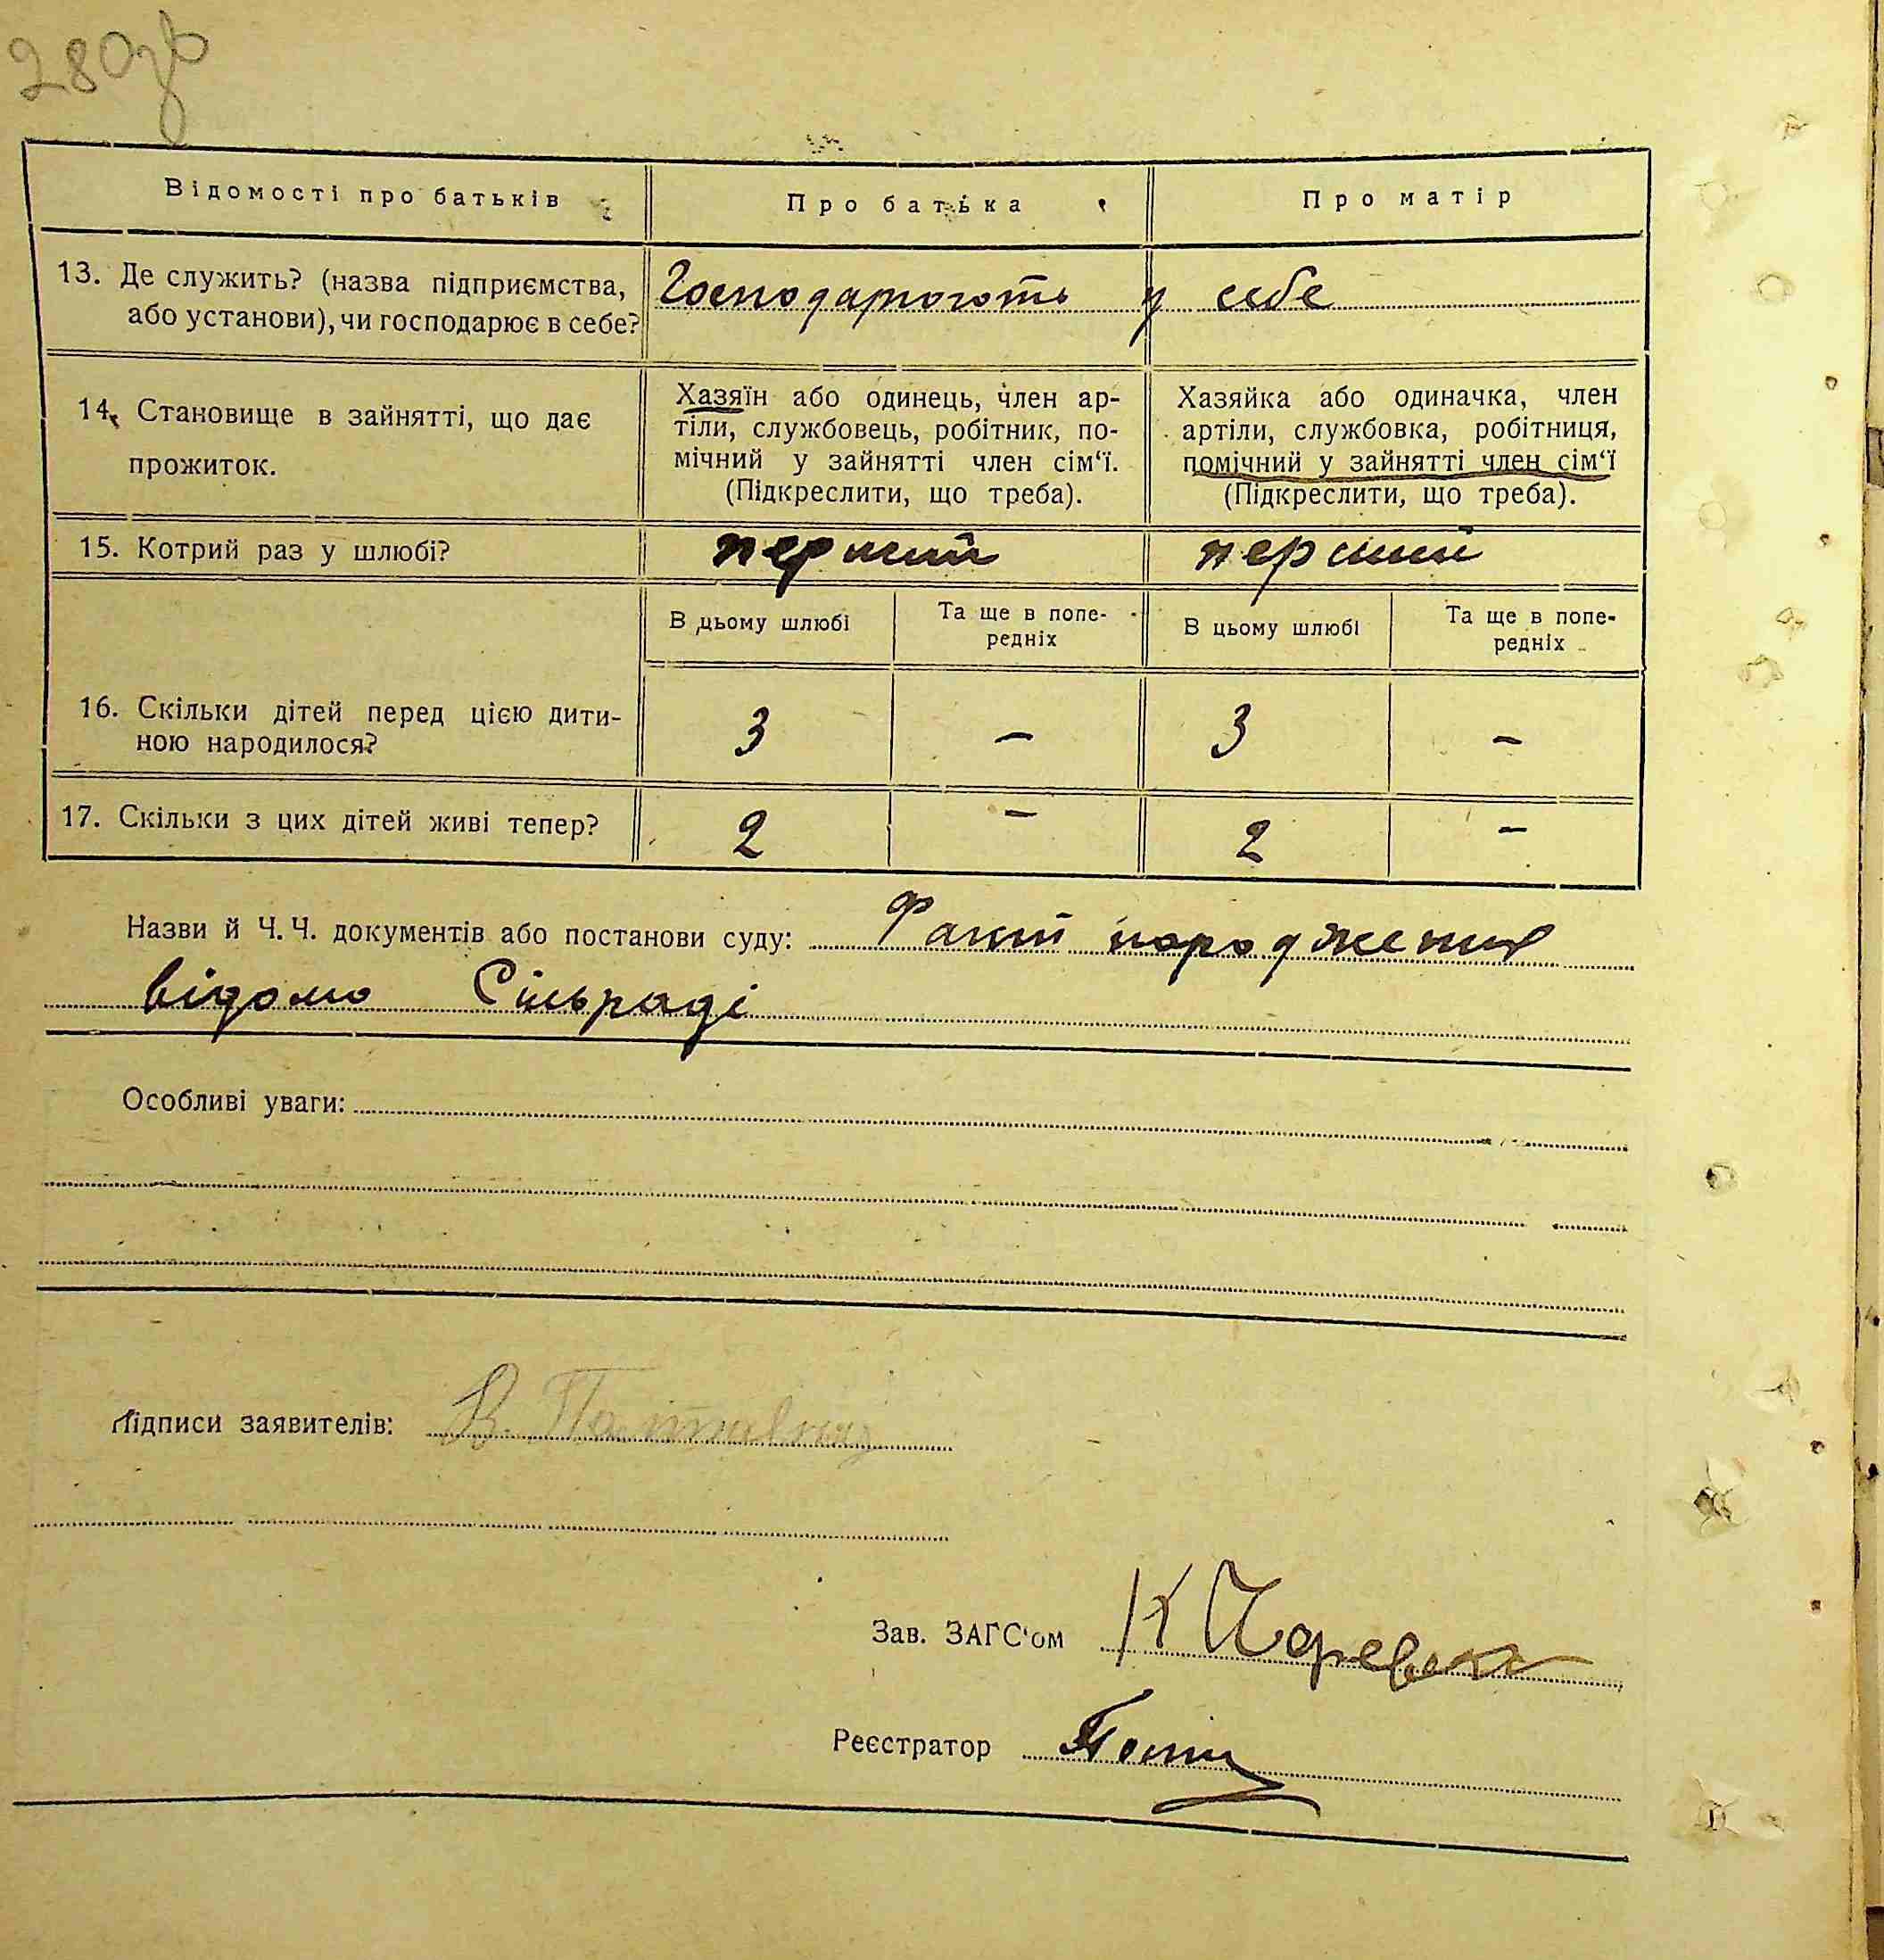 280зв
Відомості про батьків
Про батька
Про матір
13. Де служить? (назва підприємства,
або установи), чи господарює в себе?
Господарюють у себе
14. Становище в зайнятті, що дає
прожиток.
Хазяїн або одинець, член ар-
тіли, службовець, робітник, по-
мічний у зайнятті член сім'ї.
(Підкреслити, що треба).
Хазяйка або одиначка, член
артіли, службовка, робітниця,
помічний у зайнятті член сім'ї
(Підкреслити, що треба).
15. Котрий раз у шлюбі?
перший
перший
В цьому шлюбі
Та ще в попе-
редніх
В цьому шлюбі
Та ще в попе-
редніх
16. Скільки дітей перед цією дити-
ною народилося?
3
–
3
–
17. Скільки з цих дітей живі тепер?
2
–
2
–
Назви й Ч.Ч. документів або постанови суду: Факт народження
відомо Сільраді
Особливі уваги:
Підписи заявителів: В.
Зав. ЗАГС'ом К
Реєстратор